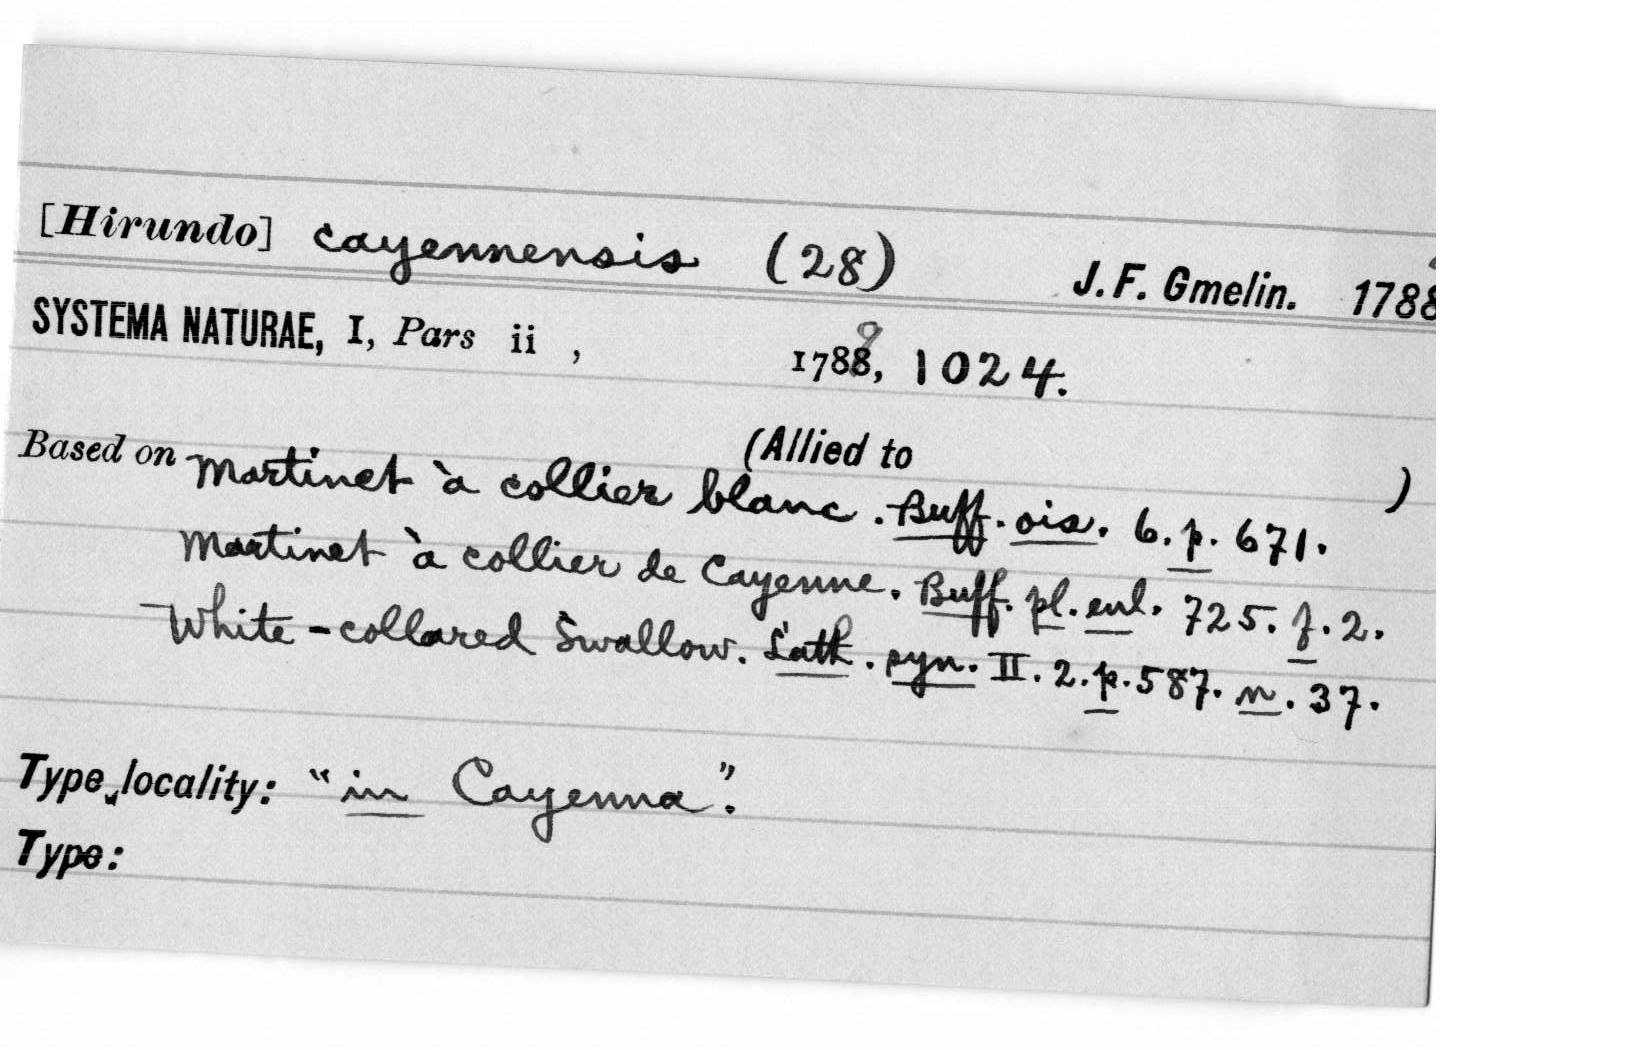 [Hirundo] cayennensis (28) J. F. Gmelin. 1788
SYSTEMA NATURAE, I, Pars ii , 1788, 9 1024.
(Allied to )
Based on Martinet à collier blanc. Buff. ois. 6. p. 671.
Martinet à collier de Cayenne. Buff. pl. enl. 725. f. 2.
White-collared Swallow. Lath. syn. II. 2. p. 587. n. 37.
Type locality: "in Cayenna".
Type: